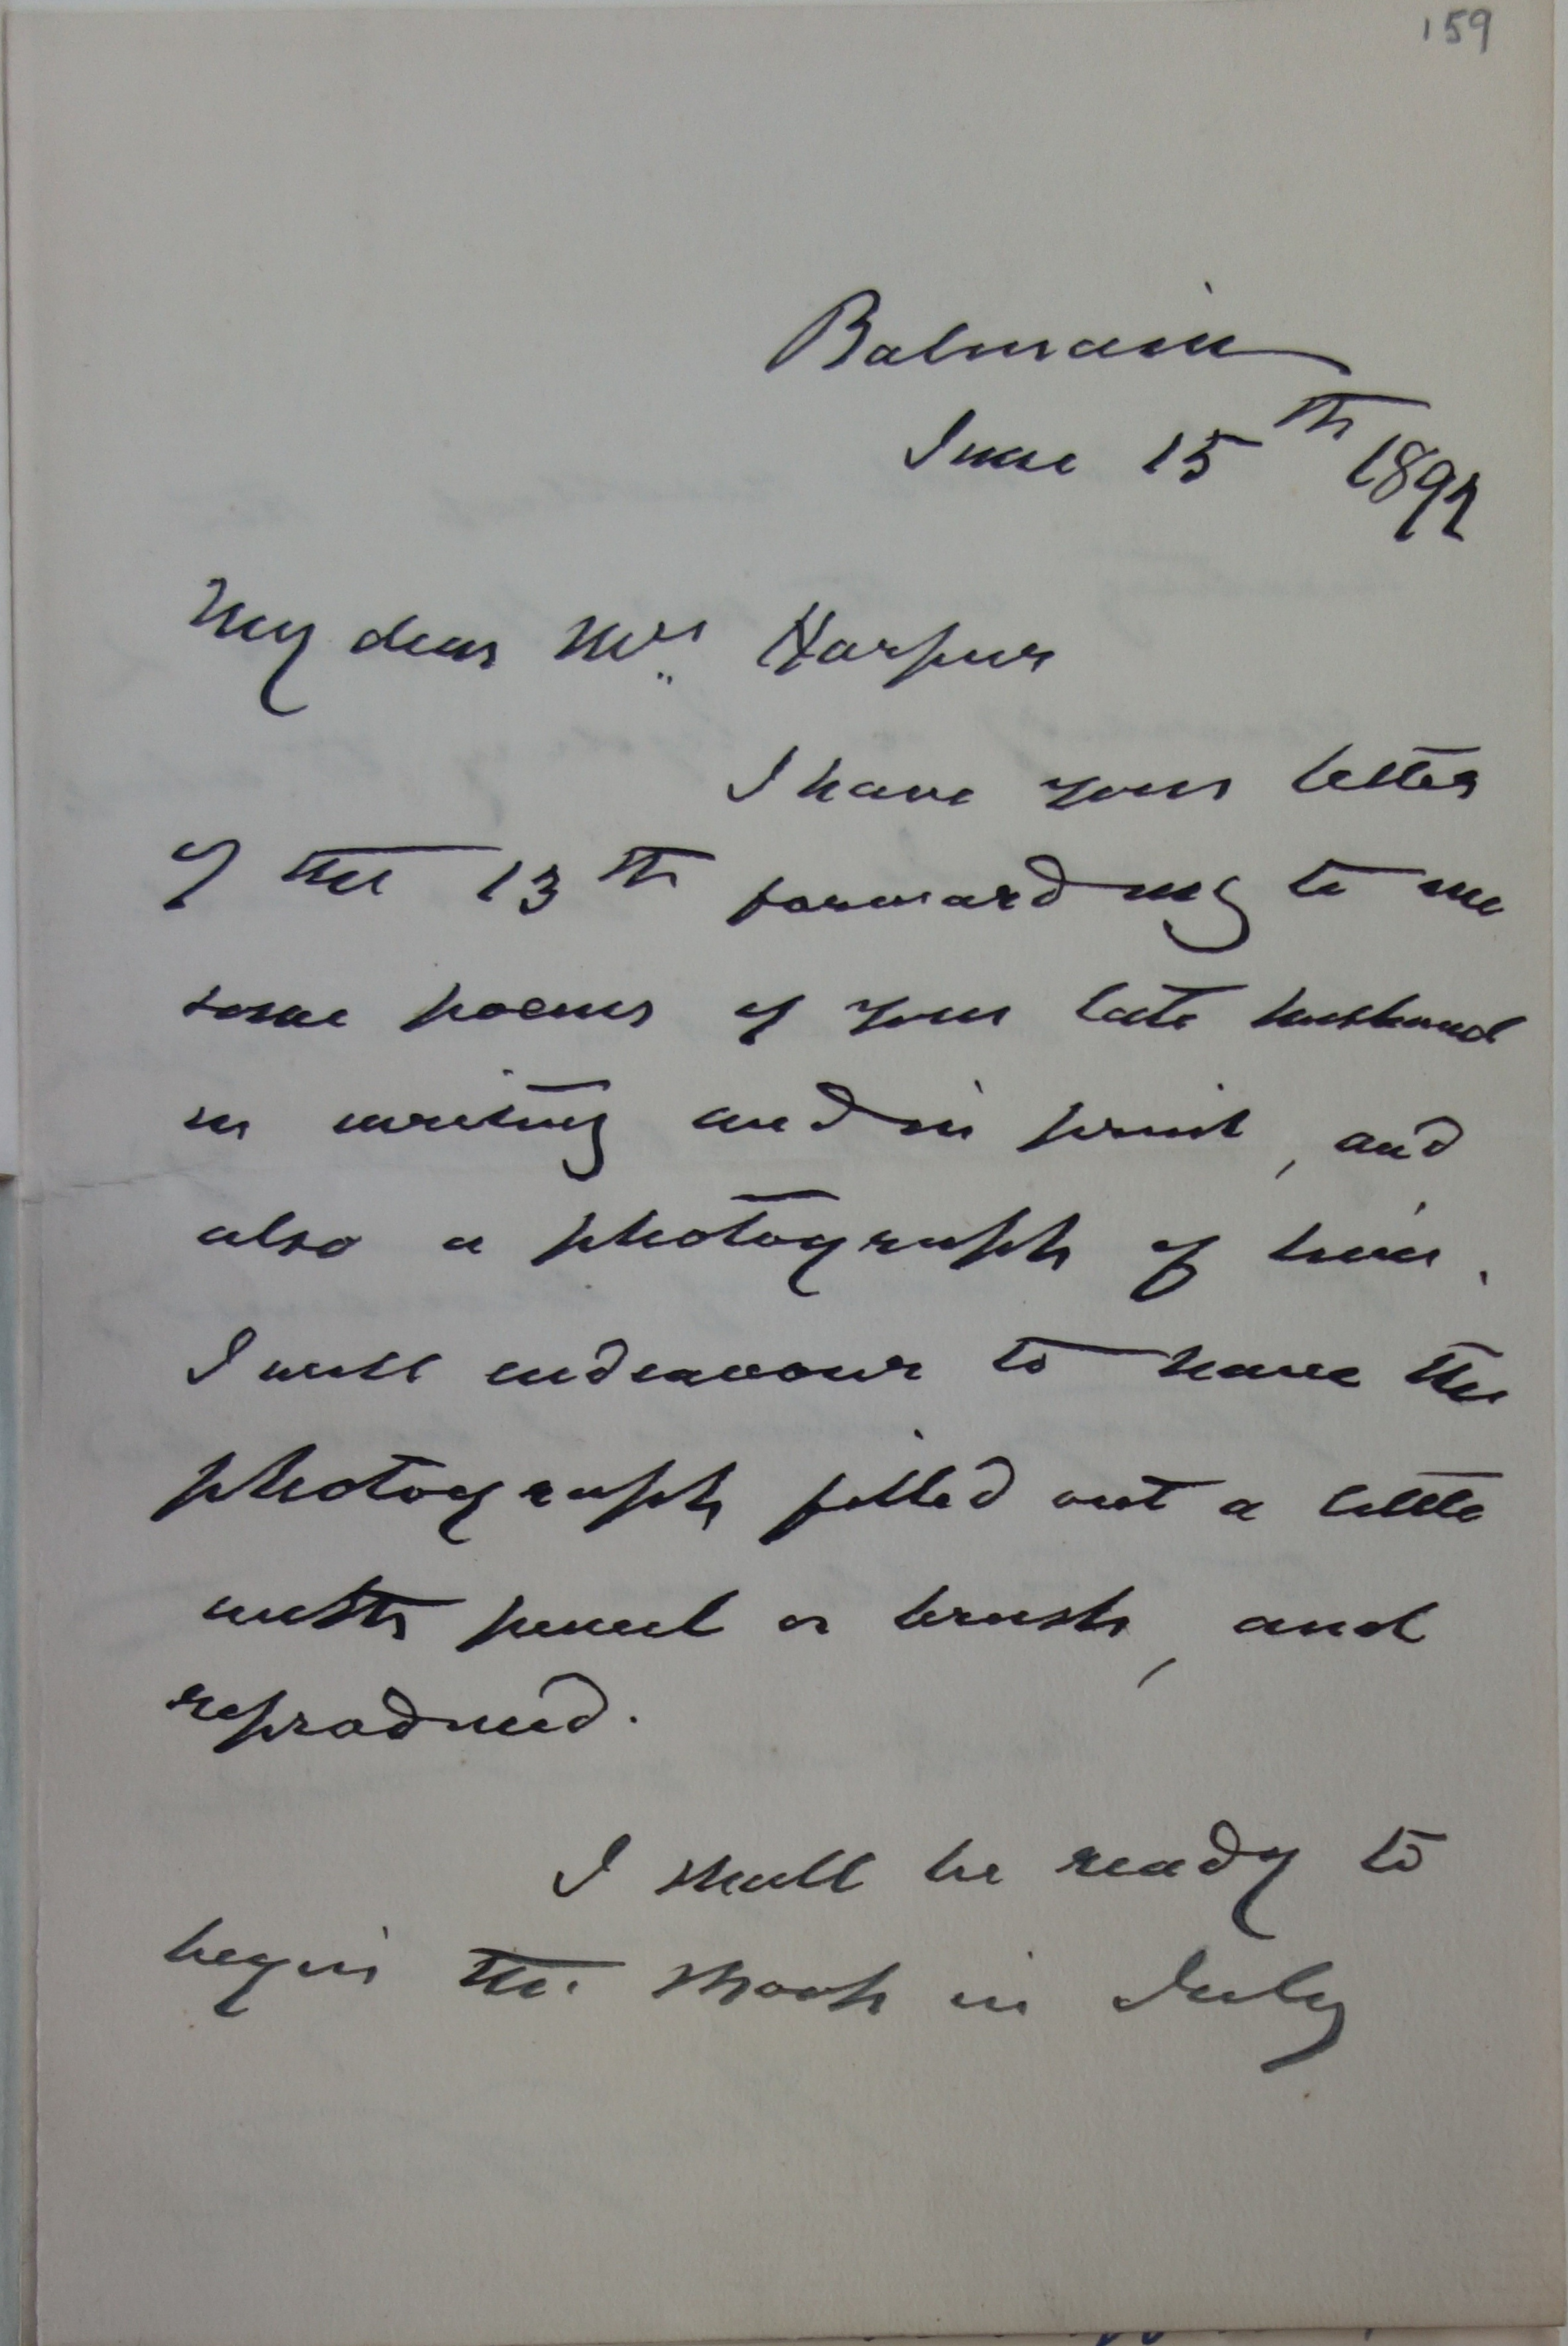 159
Balmain
June 15th 1897
My dear Mrs Harpur
I have your letter
of the 13th forwarding to me
some poems of your late husband
in writing and in print, and
also a photograph of him.
I will endeavour to have the
photograph filled out a little
with pencil or brush, and
reproduced.
I shall be ready to
begin the book in July